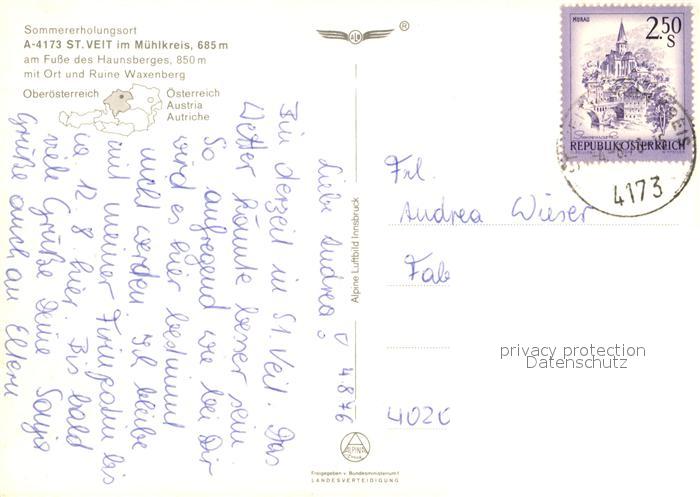 Sommererholungsort
A-4173 ST. VEIT im Mühlkreis, 685 m
am Fuße des Haunsberges, 850 m
mit Ort und Ruine Waxenberg
Oberösterreich
Österreich
Austria
Autriche
4.8.76
Liebe Andrea!
Bin derzeit in St. Veit. Das
Wetter könnte besser sein
So aufregend wie bei Dir
wird es hier bestimmt
nicht werden. Ich bleibe
mit meiner Firmpatin bis
12. 8. hier. Bis bald
viele Grüße Deine Sonja
Grüße auch an Eltern
Alpine Luftbild Innsbruck
ALPINE
Freigegeben v. Bundesministerium f.
LANDESVERTEIDIGUNG
®
MURAU
2.50
S
REPUBLIK ÖSTERREICH
4173
Frl.
Andrea Wieser
Fab
4020
privacy protection
Datenschutz